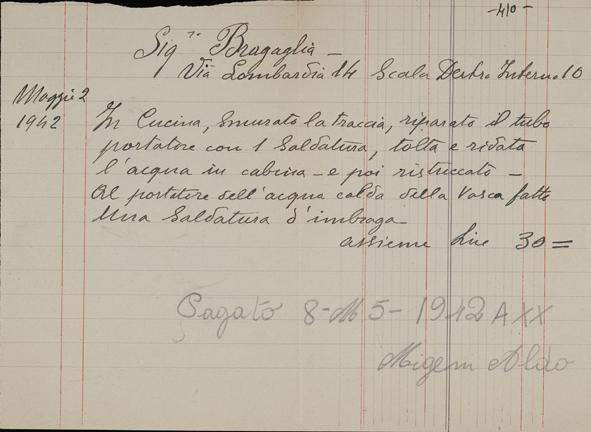 -410-
Sigri Bragaglia -
Via Lombardia 14 Scala Destra Interno 10
Maggio 2
1942
In Cucina, Smurato la traccia, riparato il tubo
portatore con 1 Saldatura, tolta e ridata
l'acqua in cabina - e poi ristuccato -
Al portatore dell'acqua calda della Vasca fatto
Una Saldatura d'imbraga -
assieme Lire 30 =
Pagato 8-M5-1942 A XX
Aldo